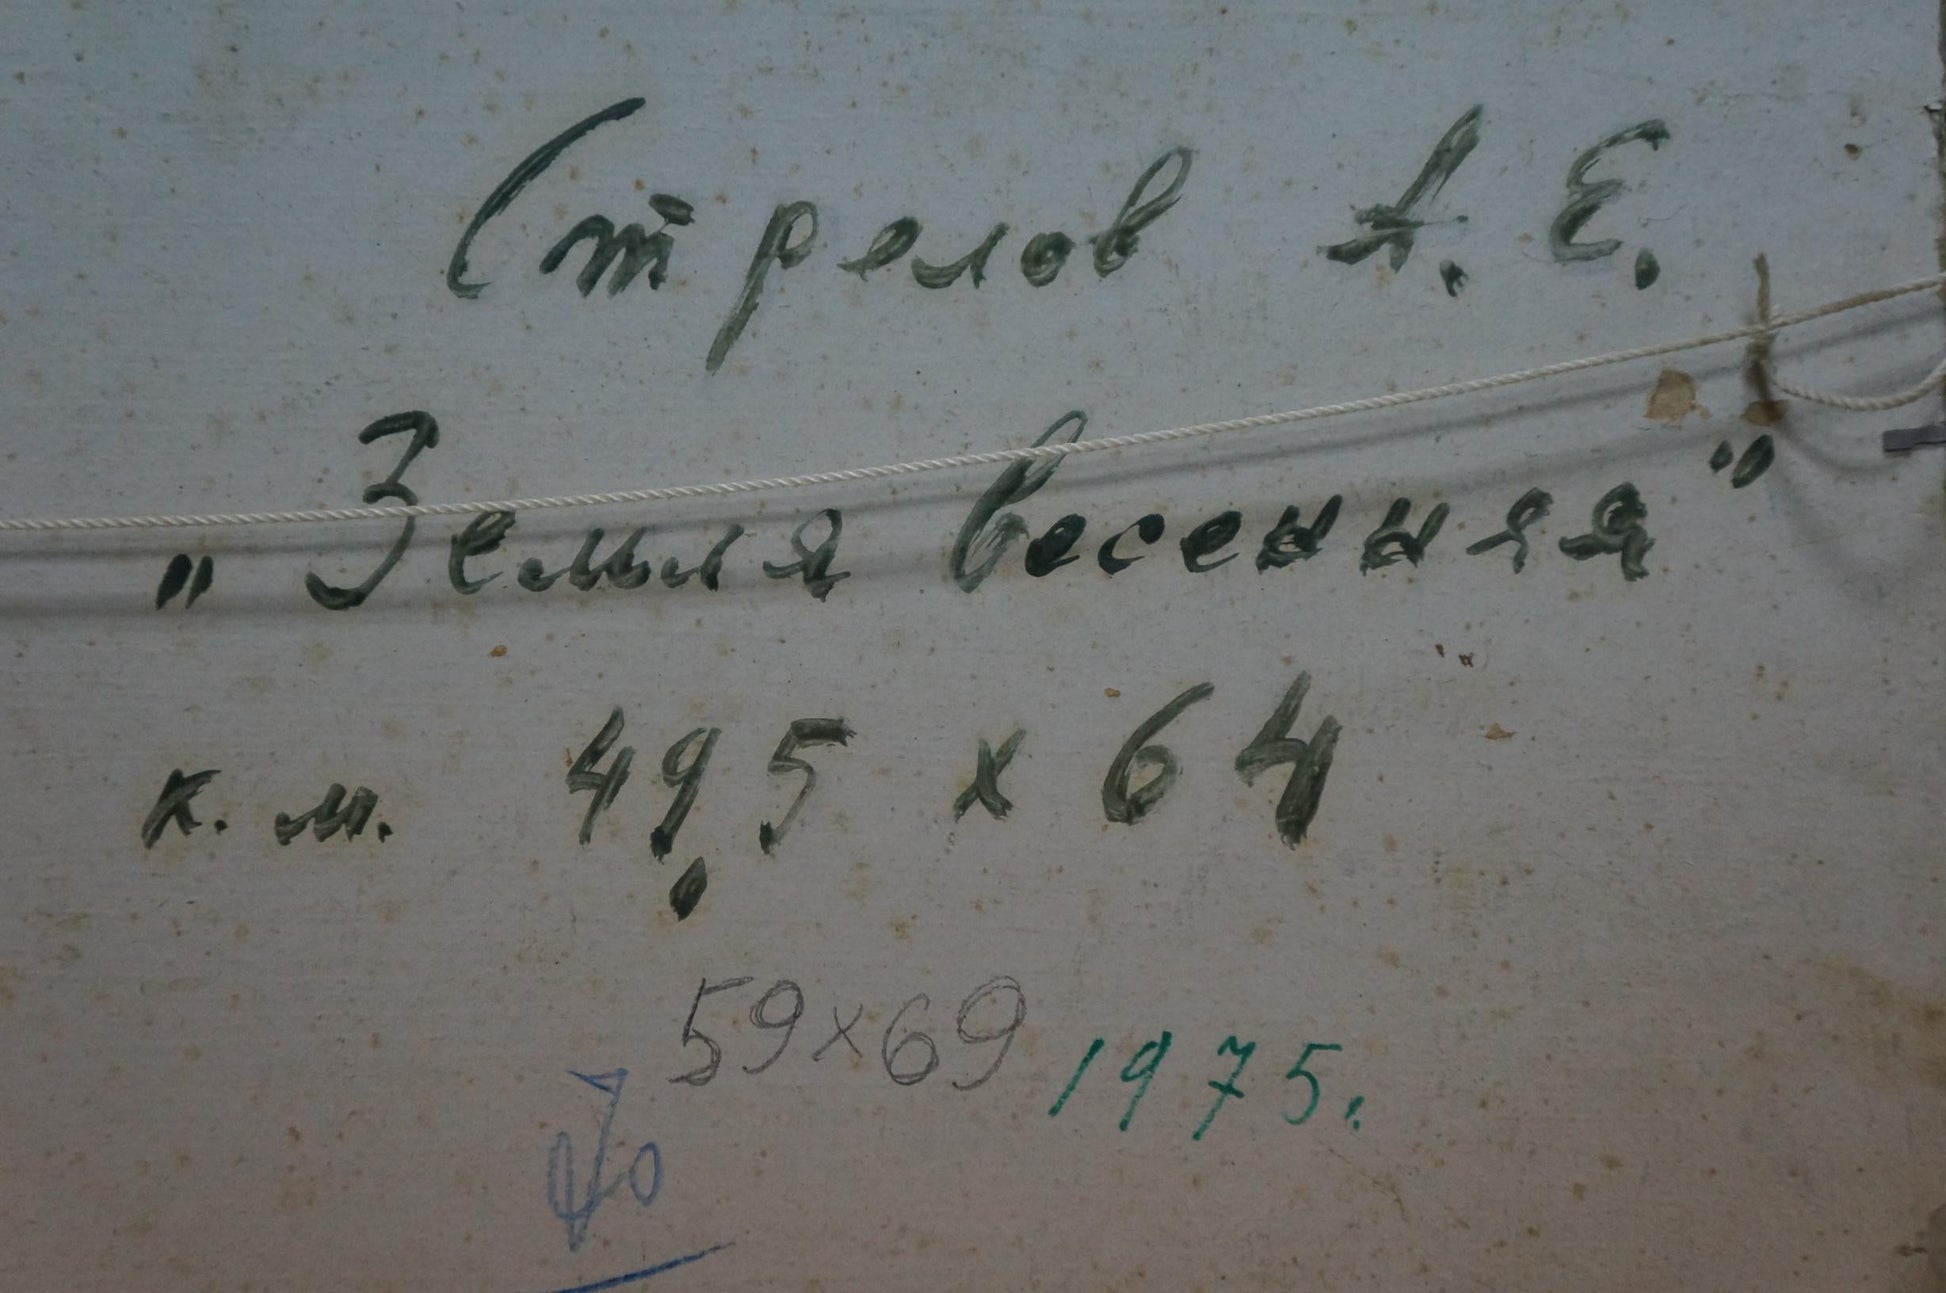 Стрелов А. Е.
„Земля весенняя“
к. м. 49,5 х 64
59х69
1975.